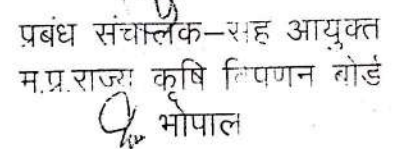 प्रबंध संचालक–सह आयुक्त
म.प्र.राज्य कृषि विपणन बोर्ड
भोपाल